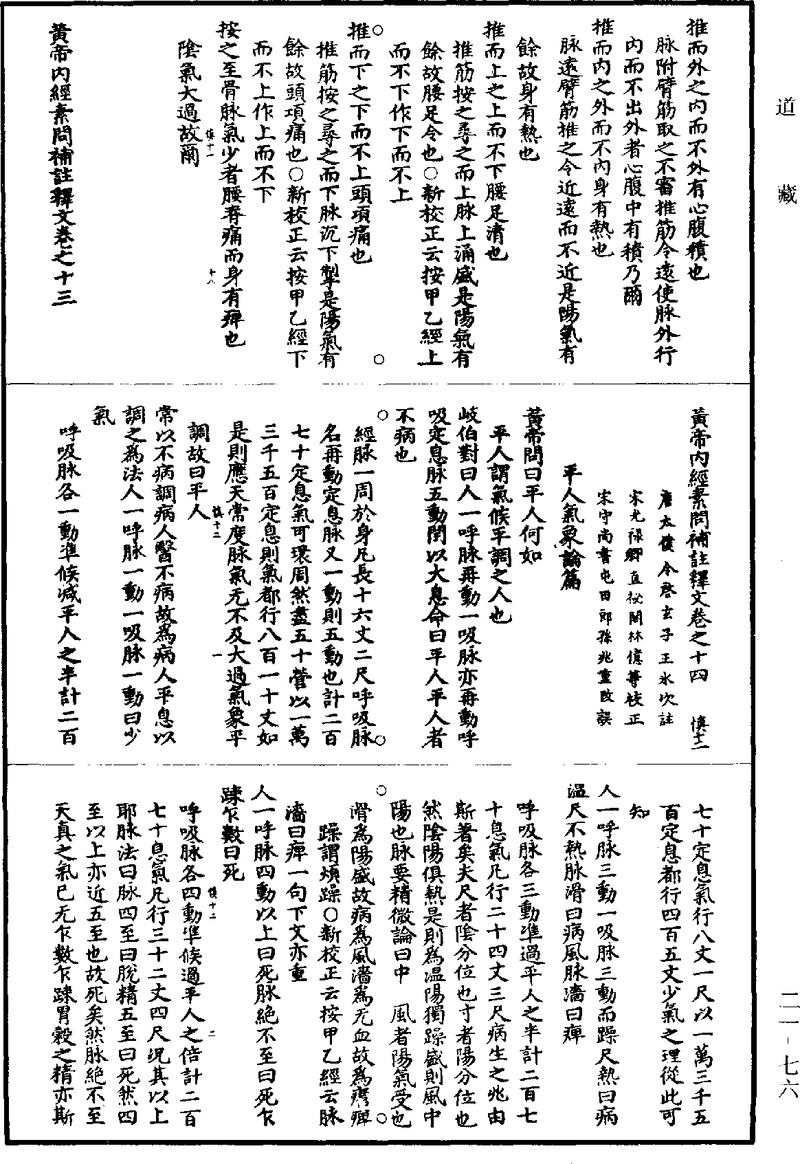 道藏
推而外之内而不外有心腹積也
脉附臂筋取之不審推筋令遠使脉外行
内而不出外者心腹中有積乃爾
推而内之外而不内身有熱也
脉遠臂筋推之令近遠而不近是陽氣有
餘故身有熱也
推而上之上而不下腰足清也
推筋按之尋之而上脉上涌盛是陽氣有
餘故腰足令也○新校正云按甲乙經上
而不下作下而不上
推而下之下而不上頭項痛也
推筋按之尋之而下脉沉下掣是陽氣有
餘故頭項痛也○新校正云按甲乙經下
而不上作上而不下
按之至骨脉氣少者腰脊痛而身有痺也
陰氣大過故爾
慎十一
十八
黃帝内經素問補註釋文卷之十三
黃帝内經素問補註釋文卷之十四 慎十二
唐太僕令啓玄子王冰次註
宋光祿卿直祕閣林億等校正
宋守尚書屯田郎孫兆重改誤
平人氣象論篇
黃帝問曰平人何如
平人謂氣候平調之人也
岐伯對曰人一呼脉再動一吸脉亦再動呼
吸定息脉五動閏以大息命曰平人平人者
不病也
經脉一周於身凡長十六丈二尺呼吸脉
名再動定息脉又一動則五動也計二百
七十定息氣可環周然盡五十營以一萬
三千五百定息則氣都行八百一十丈如
是則應天常度脉氣无不及大過氣象平
調故曰平人
慎十二
一
常以不病調病人醫不病故為病人平息以
調之為法人一呼脉一動一吸脉一動曰少
氣
呼吸脉各一動準候減平人之半計二百
七十定息氣行八丈一尺以一萬三千五
百定息都行四百五丈少氣之理從此可
知
人一呼脉三動一吸脉三動而躁尺熱曰病
溫尺不熱脉滑曰病風脉濇曰痺
呼吸脉各三動準過平人之半計二百七
十息氣凡行二十四丈三尺病生之兆由
斯著矣夫尺者陰分位也寸者陽分位也
然陰陽俱熱是則為温陽獨躁盛則風中
陽也脉要精微論曰中 風者陽氣受也
滑為陽盛故病為風濇為无血故為㾏痺
躁謂煩躁○新校正云按甲乙經云脉
濇曰痺一句下文亦重
人一呼脉四動以上曰死脉絶不至曰死乍
踈乍數曰死
慎十二
二
呼吸脉各四動準候過平人之倍計二百
七十息氣凡行三十二丈四尺况其以上
耶脉法曰脉四至曰脫精五至曰死然四
至以上亦近五至也故死矣然脉絶不至
天真之氣已无乍數乍踈胃穀之精亦斯
二一-七六